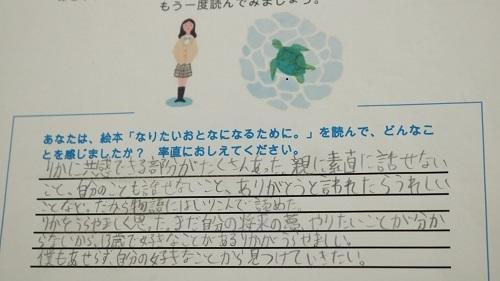 もう一度読んでみましょう。
あなたは、絵本「なりたいおとなになるために。」を読んで、どんなこ
とを感じましたか？ 率直におしえてください。
りかに共感できる部分がたくさんあった。親に素直に話せない
こと、自分のことも話せないこと、ありがとうと言われたらうれしい
ことなど。だから物語にはいりこんで読めた。
りかをうらやましく思った。まだ自分の将来の夢、やりたいことが分か
らないから、13歳で好きなことがあるりかがうらやましい。
僕もあせらず、自分の好きなことから見つけていきたい。